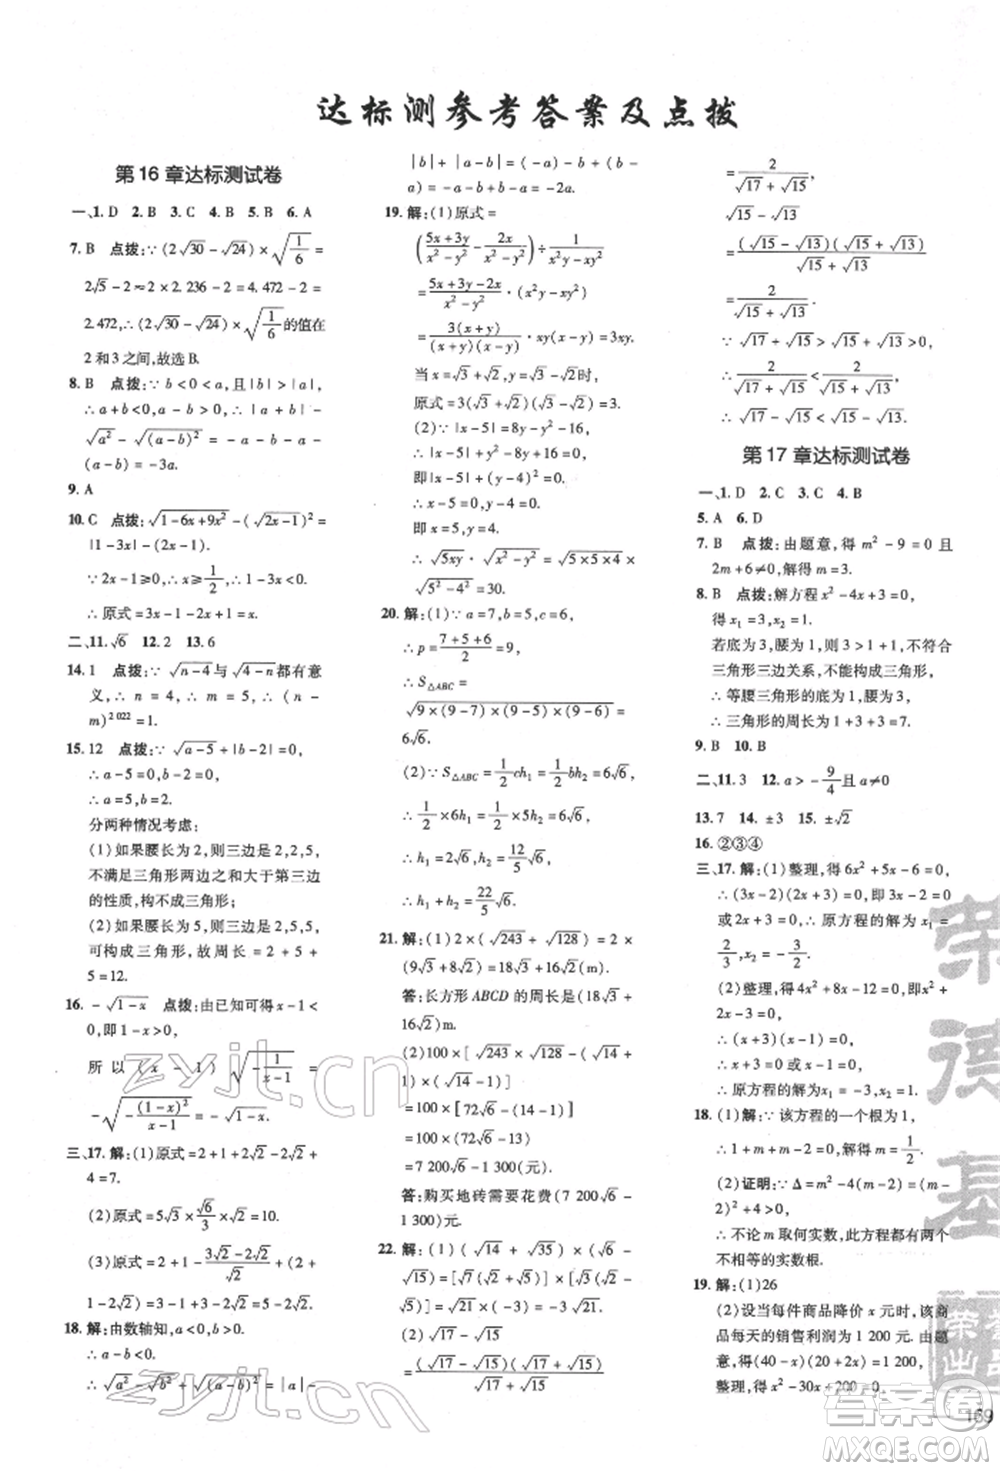 达标测参考答案及点拨
第16章达标测试卷
一、1. D 2. B 3. C 4. B 5. B 6. A
7. B 点拨:∵(2√30-√24)×√(1/6)=
2√5-2≈2×2.236-2=4.472-2=
2.472,∴(2√30-√24)×√(1/6)的值在
2和3之间,故选B.
8. B 点拨:∵b<0<a,且|b|>|a|,
∴a+b<0,a-b>0,∴|a+b|+
√a²-√(a-b)²=-a-b+a-
(a-b)=-3a.
9. A
10. C 点拨:√(1-6x+9x²)-(√(2x-1))²=
|1-3x|-(2x-1).
∵2x-1≥0,∴x≥1/2,∴1-3x<0.
∴原式=3x-1-2x+1=x.
二、11. √6 12. 2 13. 6
14. 1 点拨:∵√(n-4)与√(4-n)都有意
义,∴n=4,∴m=5,∴(n-
m)²⁰²²=1.
15. 12 点拨:∵√(a-5)+|b-2|=0,
∴a-5=0,b-2=0,
∴a=5,b=2.
分两种情况考虑:
(1)如果腰长为2,则三边边长为2,2,5,
不满足三角形两边之和大于第三边
的性质,构不成三角形;
(2)如果腰长为5,则三边边长为5,5,2,
可构成三角形,故周长=5+5+
2=12.
16. -√(1-x) 点拨:由已知可得x-1<
0,即1-x>0,
所以(x-1)√(-1/(x-1))=
-√(-(1-x)²/(x-1))=-√(1-x).
三、17. 解:(1)原式=2+1+√2-√2+
4=7.
(2)原式=5√3×√6/3×√2=10.
(3)原式=2-1-(3√2-2√2)/√2+
1-2√2+2=3-2√2.
18. 解:由数轴知,a<0,b>0.
∴a-b<0.
∴√a²-√b²+√(a-b)²=|a|-
|b|+|a-b|=(-a)-b+(b-
a)=-a-b+b-a=-2a.
19. 解:(1)原式=
((5x+3y)/(x²-y²)-2x/(x²-y²))÷1/(x²y-xy²)
=(5x+3y-2x)/(x²-y²)·(x²y-xy²)
=3(x+y)/((x+y)(x-y))·xy(x-y)=3xy.
当x=√3+√2,y=√3-√2时,
原式=3(√3+√2)(√3-√2)=3.
(2)∵|x-5|=8y-y²-16,
∴|x-5|+y²-8y+16=0.
即|x-5|+(y-4)²=0.
∴x-5=0,y-4=0.
即x=5,y=4.
∴√5xy-√(x²-y²)=√(5×5×4)-
√(5²-4²)=... 
20. 解:(1)∵a=7,b=5,c=6,
∴p=(7+5+6)/2=9,
∴S△ABC=
√(9×(9-7)×(9-5)×(9-6))=
6√6.
(2)∵S△ABC=1/2ch₁=1/2bh₂=6√6,
∴1/2×6h₁=1/2×5h₂=6√6.
∴h₁=2√6,h₂=12/5√6.
∴h₁+h₂=22/5√6.
21. 解:(1)2×(√243+√128)=2×
(9√3+8√2)=18√3+16√2(m).
答:长方形ABCD的周长是(18√3+
16√2)m.
(2)100×[√243×√128-(√14+
1)×(√14-1)]
=100×[72√6-(14-1)]
=100×(72√6-13)
=7 200√6-1 300(元).
答:购买地砖需要花费(7 200√6-
1 300)元.
22. 解:(1)(√14+√35)×(√7-√2)
=[√7(√2+√5)]×(√5-√2)
=√7×[(√5+√2)×(√5-√2)]=3√7.
(2)√17-√15
=(√17-√15)(√17+√15)/(√17+√15)
=2/(√17+√15),
√15-√13
=(√15-√13)(√15+√13)/(√15+√13)
=2/(√15+√13).
∵√17+√15>√15+√13>0,
∴2/(√17+√15)<2/(√15+√13).
∴√17-√15<√15-√13.
第17章达标测试卷
一、1. D 2. C 3. C 4. B
5. A 6. D
7. B 点拨:由题意,得m²-9=0且
2m+6≠0,解得m=3.
8. B 点拨:解方程x²-4x+3=0,
得x₁=3,x₂=1.
若底为3,腰为1,由于3>1+1,不符合
三角形三边关系,不能构成三角形;
∴等腰三角形的底为1,腰为3.
∴三角形的周长为1+3+3=7.
9. B 10. B
二、11. 3 12. a>-9/4且a≠0
13. 7 14. ±3 15. ±√2
16. ②③④
三、17. 解:(1)整理,得6x²+5x-6=0.
∴(3x-2)(2x+3)=0,即3x-2=0
或2x+3=0,∴原方程的解为x₁=
2/3,x₂=-3/2.
(2)整理,得4x²+8x+4=0,即x²+
2x+1=0.
∴(x+1)²=0.
∴x+1=0或x+1=0.
∴原方程的解为x₁=x₂=-1.
18. (1)解:∵该方程的一个根为1,
∴1+m+m-2=0.解得m=1/2.
(2)证明:∵Δ=m²-4(m-2)=(m-
2)²+4>0,
∴不论m取何实数,此方程都有两个
不相等的实数根.
19. 解:(1)26
(2)设当每件商品降价x元时,该商
品每天的销售利润为1 200元.由题
意,得(40-x)(20+2x)=1 200.
整理,得x²-30x+200=0
169
zyjl.cn
荣德基
答案圈
MXQE.COM